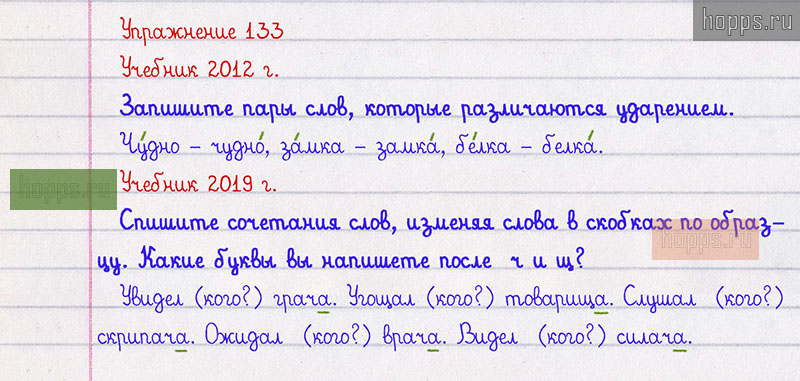 hopps.ru
Упражнение 133
Учебник 2012 г.
Запишите пары слов, которые различаются ударением.
Чу́дно – чудно́, за́мка – замка́, бе́лка – белка́.
hopps.ru
Учебник 2019 г.
Спишите сочетания слов, изменяя слова в скобках по образ-
hopps.ru
цу. Какие буквы вы напишете после ч и щ?
Увидел (кого?) грача. Угощал (кого?) товарища. Слушал (кого?)
скрипача. Ожидал (кого?) врача. Видел (кого?) силача.